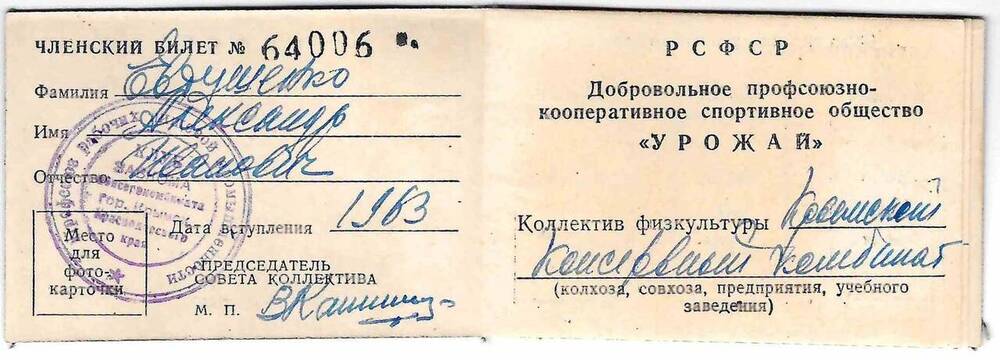 ЧЛЕНСКИЙ БИЛЕТ № 64006
Фамилия Евтушенко
Имя Александр
Отчество Иванович
Дата вступления 1963
Место
для
фото-
карточки
ПРЕДСЕДАТЕЛЬ
СОВЕТА КОЛЛЕКТИВА
М. П.
КЛУБ
ЗАВКОМА
Консервкомбината
гор. Крымск
Краснодарского
края
РСФСР
Добровольное профсоюзно-
кооперативное спортивное общество
«УРОЖАЙ»
Коллектив физкультуры
Консервный комбинат
(колхоза, совхоза, предприятия, учебного
заведения)